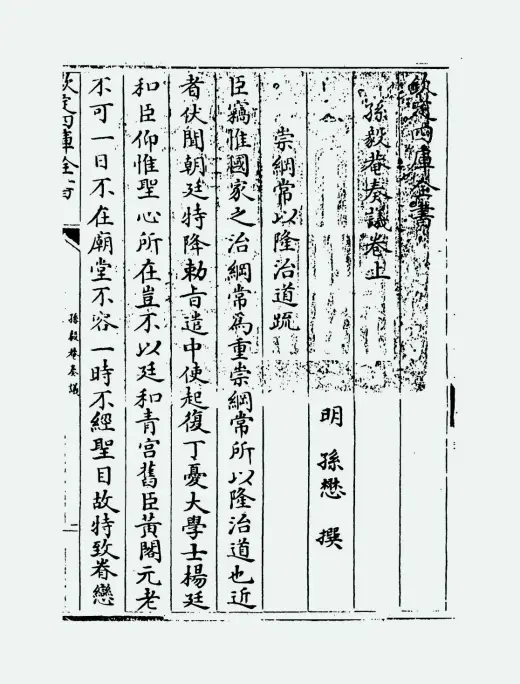 欽定四庫全書
孫毅菴奏議卷上
明 孫懋 撰
崇綱常以隆治道疏
臣竊惟國家之治綱常為重崇綱常所以隆治道也近
者伏聞朝廷特降勅㫖遣中使起復丁憂大學士楊廷
和臣仰惟聖心所在豈不以廷和青宮舊臣黃閣元老
不可一日不在廟堂不容一時不經聖目故特致眷戀
欽定四庫全書
孫毅菴奏議